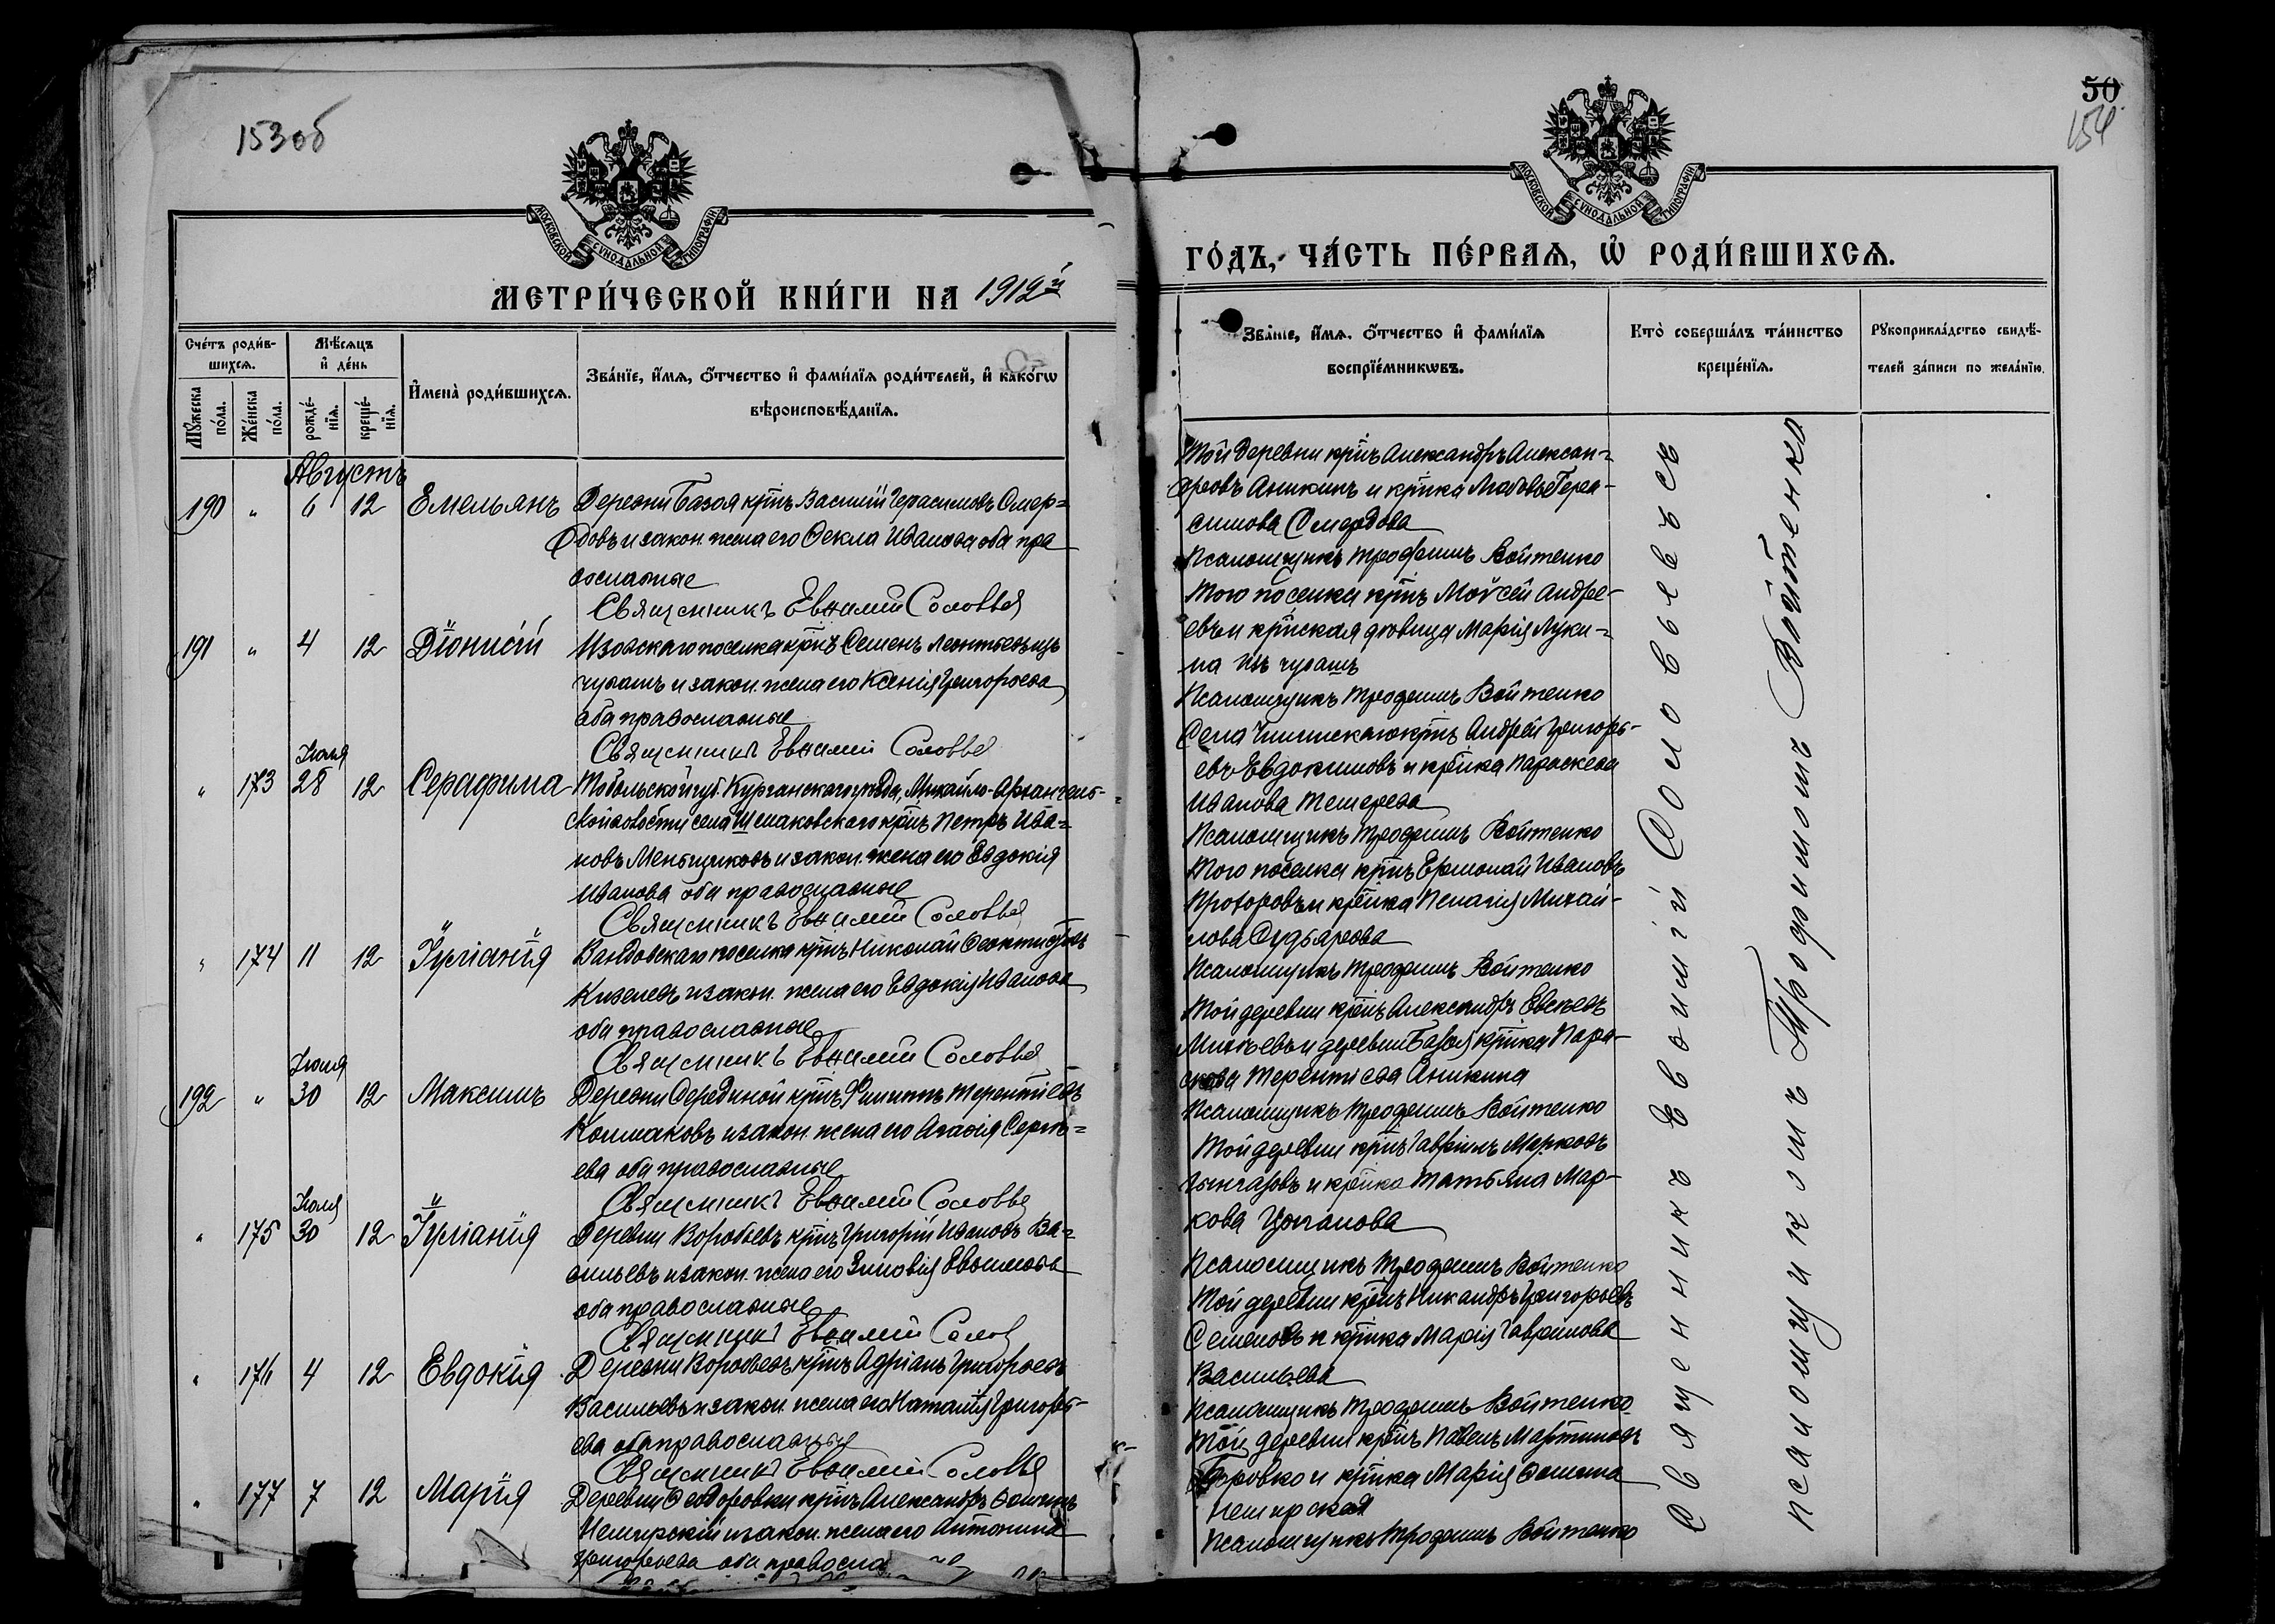 153об
МОСКОВСКОЙ СУНОДАЛЬНОЙ ТИПОГРАФІИ
МЕТРИ́ЧЕСКОЙ КНИ́ГИ НА 1912й
Сче́тъ роди́в-
шихсѧ.
Мѣ́сѧцъ
и҆ де́нь
Мꙋ́жеска
по́ла.
Же́нска
по́ла.
рожде́-
нїѧ.
креще́-
нїѧ.
И҆мена̀ роди́вшихсѧ.
Зва́нїе, и҆́мѧ, ѻ҆́тчество и҆ фами́лїѧ роди́телей, и҆ како́гѡ
вѣроисповѣ́данїѧ.
Августъ
190 " 6 12 Емельянъ Деревни Базоя крнъ Василій Герасимовъ Смер=
довъ и закон. жена его Ѳекла Иванова оба пра
вославные
Священникъ Евѳимій Соловьев
191 " 4 12 Діонисій поселка крнъ Семенъ Леонтьевъ изъ
чувашъ и закон. жена его Ксенія Григорьева
оба православные
Священникъ Евѳимій Соловьев
Іюля
" 173 28 12 Серафима Тобольской губ. Курганскаго уѣзда, Михайло-Архангель-
ской волости села Шмаковскаго крнъ Петръ Ива=
новъ Меньщиковъ и закон. жена его Евдокія
Иванова оба православные
Священникъ Евѳимій Соловьев
" 174 11 12 Іуліанія поселка крнъ Николай Ѳеоктистовъ
Киселевъ и закон. жена его Евдокія Иванова
оба православные
Священникъ Евѳимій Соловьев
Іюля
192 " 30 12 Максимъ Деревни Серединой крнъ Филиппъ Терентіевъ
Колмаковъ и закон. жена его Агаѳія Серге=
ева оба православные
Священникъ Евѳимій Соловьев
Іюля
" 175 30 12 Іуліанія Деревни Воробьевъ крнъ Григорій Ивановъ Ва=
сильевъ и закон. жена его Зиновія Евѳимова
оба православные
Священникъ Евѳимій Солов
" 176 4 12 Евдокія Деревни Воробьевъ крнъ Адріанъ Григорьевъ
Васильевъ и закон. жена его Наталія Григорь-
ева оба православные
Священникъ Евѳимій Соловьев
" 177 7 12 Марія Деревни Ѳеодоровки крнъ Александръ Ѳоминъ
Немирскій и закон. жена его Антонина
Григорьева оба правосла
50
154
МОСКОВСКОЙ СУНОДАЛЬНОЙ ТИПОГРАФІИ
ГО́ДЪ, ЧА́СТЬ ПЕ́РВАѦ, Ѡ҆ РОДИ́ВШИХСѦ.
Зва́нїе, и҆́мѧ, ѻ҆́тчество и҆ фами́лїѧ
воспрїе́мникѡвъ.
Кто̀ соверша́лъ та́инство
креще́нїѧ.
Рꙋкоприкла́дство свидѣ́-
телей за́писи по жела́нїю.
Той деревни крнъ Александръ Алексан=
дровъ Аникинъ и крнка Любовь Гера-
симова Смердова
Псаломщикъ Трофимъ Войтенко
Того поселка крнъ Мойсей Андре-
евъ и крнская дѣвица Марія Луки=
на изъ чувашъ
Псаломщикъ Трофимъ Войтенко
Села крнъ Андрей Григорь-
евъ Евдокимовъ и крнка Параскева
Иванова
Псаломщикъ Трофимъ Войтенко
Того поселка крнъ Ермолай Ивановъ
Прохоровъ и крнка Пелагія Михай-
лова
Псаломщикъ Трофимъ Войтенко
Той деревни крнъ Александръ
и деревни Базоя крнка Пара-
скева Терентіева Аникина
Псаломщикъ Трофимъ Войтенко
Той деревни крнъ Гавріилъ Марковъ
и крнка Татьяна Мар-
кова
Псаломщикъ Трофимъ Войтенко
Той деревни крнъ Никандръ Григорьевъ
Семеновъ и крнка Марія Гаврилова
Васильева
Псаломщикъ Трофимъ Войтенко
Той деревни крнъ Павелъ Мартиновъ
и крнка Марія Ѳомина
Немирская
Псаломщикъ Трофимъ Войтенко
Священникъ Евѳимій Соловьевъ съ
псаломщикомъ Трофимомъ Войтенко